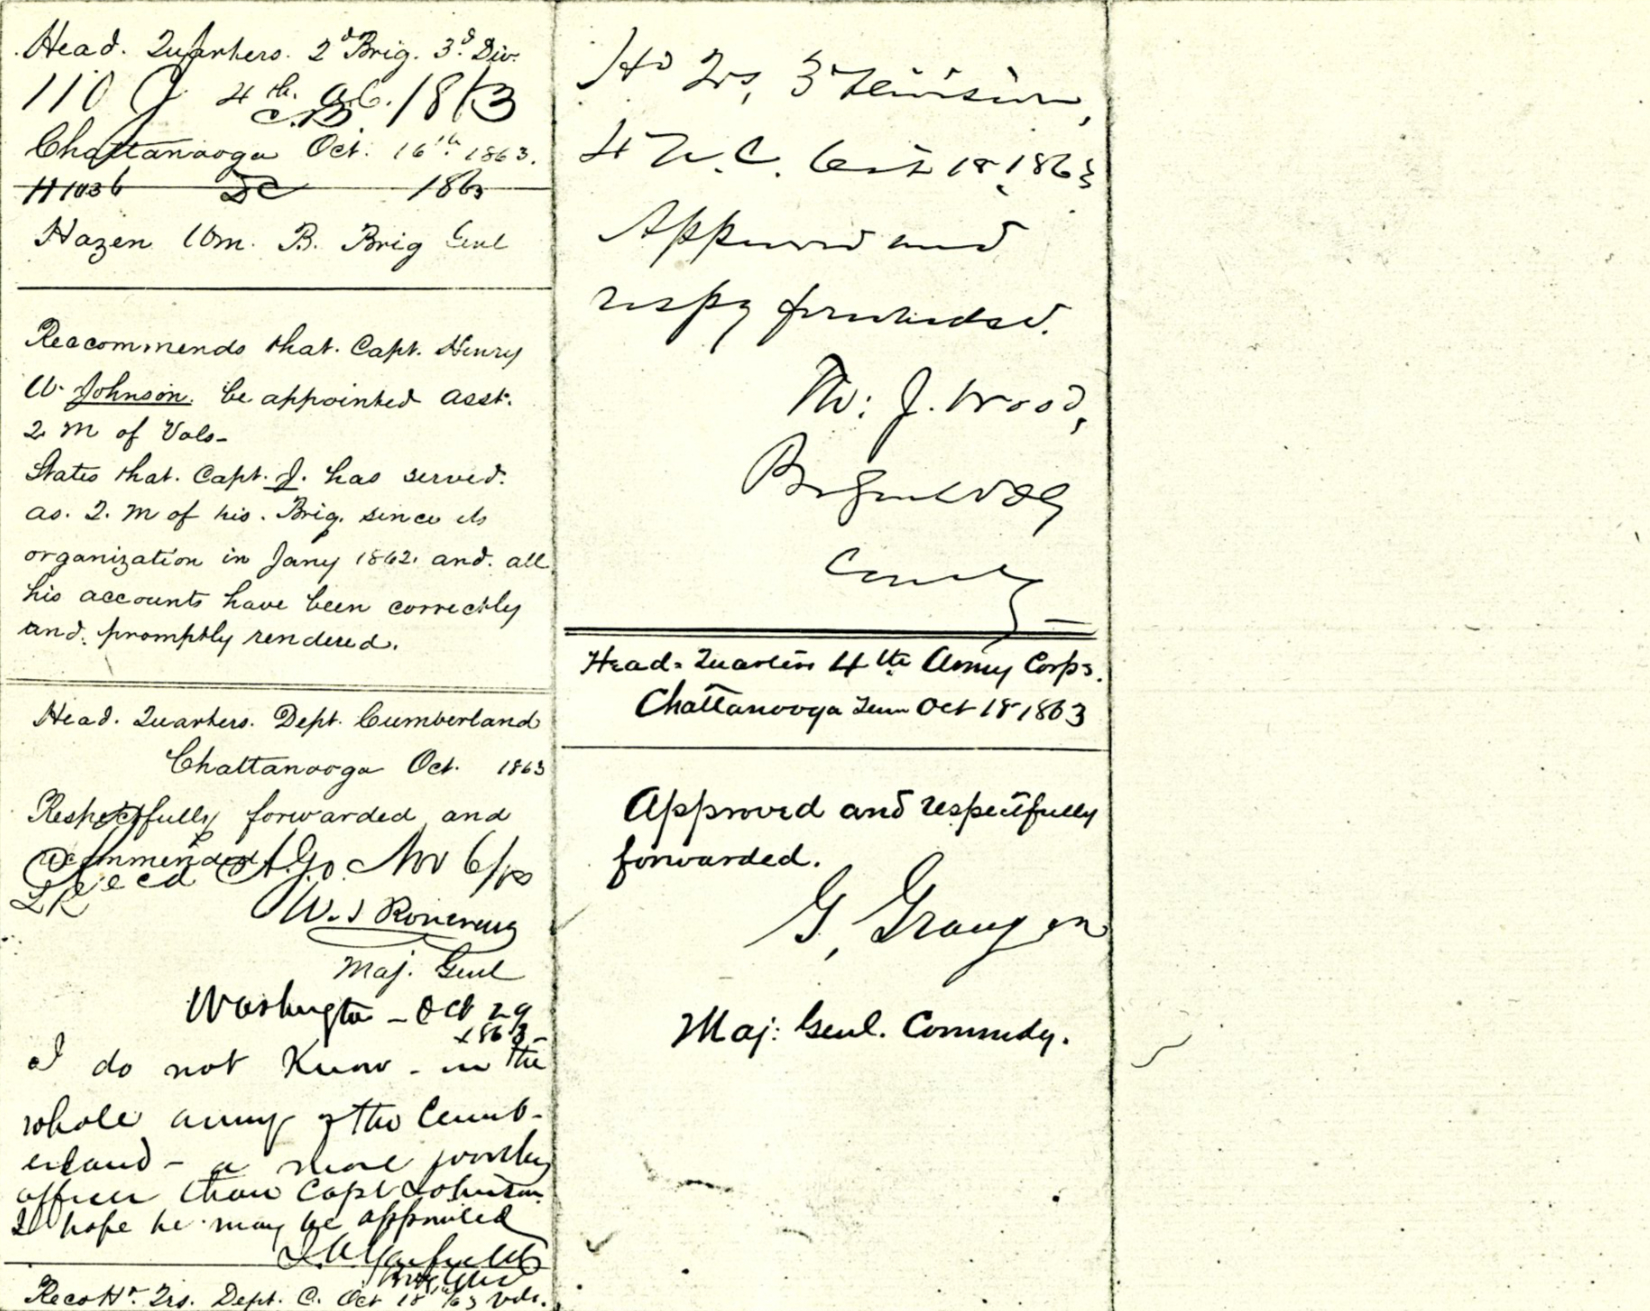 Head. Quarters. 2d Brig. 3d. Div.
110 J 4th. A.C. 1863
C.B
Chattanooga Oct. 16th. 1863.
H1036 DC 1863
Hazen Wm. B. Brig Genl
Reccommends that. Capt. Henry
W. Johnson. be appointed asst.
Q M of Vols-
States that. Capt. J. has served.
as. Q. M of his. Brig. since its
organization in Jany 1862. and. all
his accounts have been correctly
and. promptly rendered.
Head. Quarters. Dept. Cumberland
Chattanooga Oct. 1863
Respectfully forwarded and
recommended
Recd A.G.O. Nov 6/63
W. S Rosecrans
Maj. Genl
Washington - Oct 29
1863-
I do not know - in the
whole army of the Cumb-
erland - a more worthy
officer than Capt Johnson.
I hope he may be appointed
J. A. Garfield
Brig Genl
Recd Hd. Qrs. Dept. C. Oct 18th/63 Vols.
Hd Qrs, 3d Division,
4 A. C. Oct 18, 1863
Approved and
respy forwarded.
Th: J. Wood,
Br Genl Vols
Comdg
Head-Quarters 4th Army Corps.
Chattanooga Tenn Oct 18 1863
Approved and respectfully
forwarded.
G, Granger
Maj: Genl. Commdg.